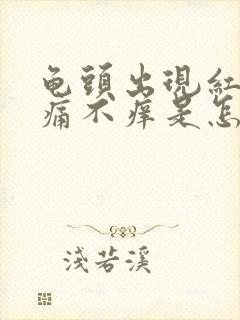 龟頭出現紅
痛不痒是怎
淺若溪